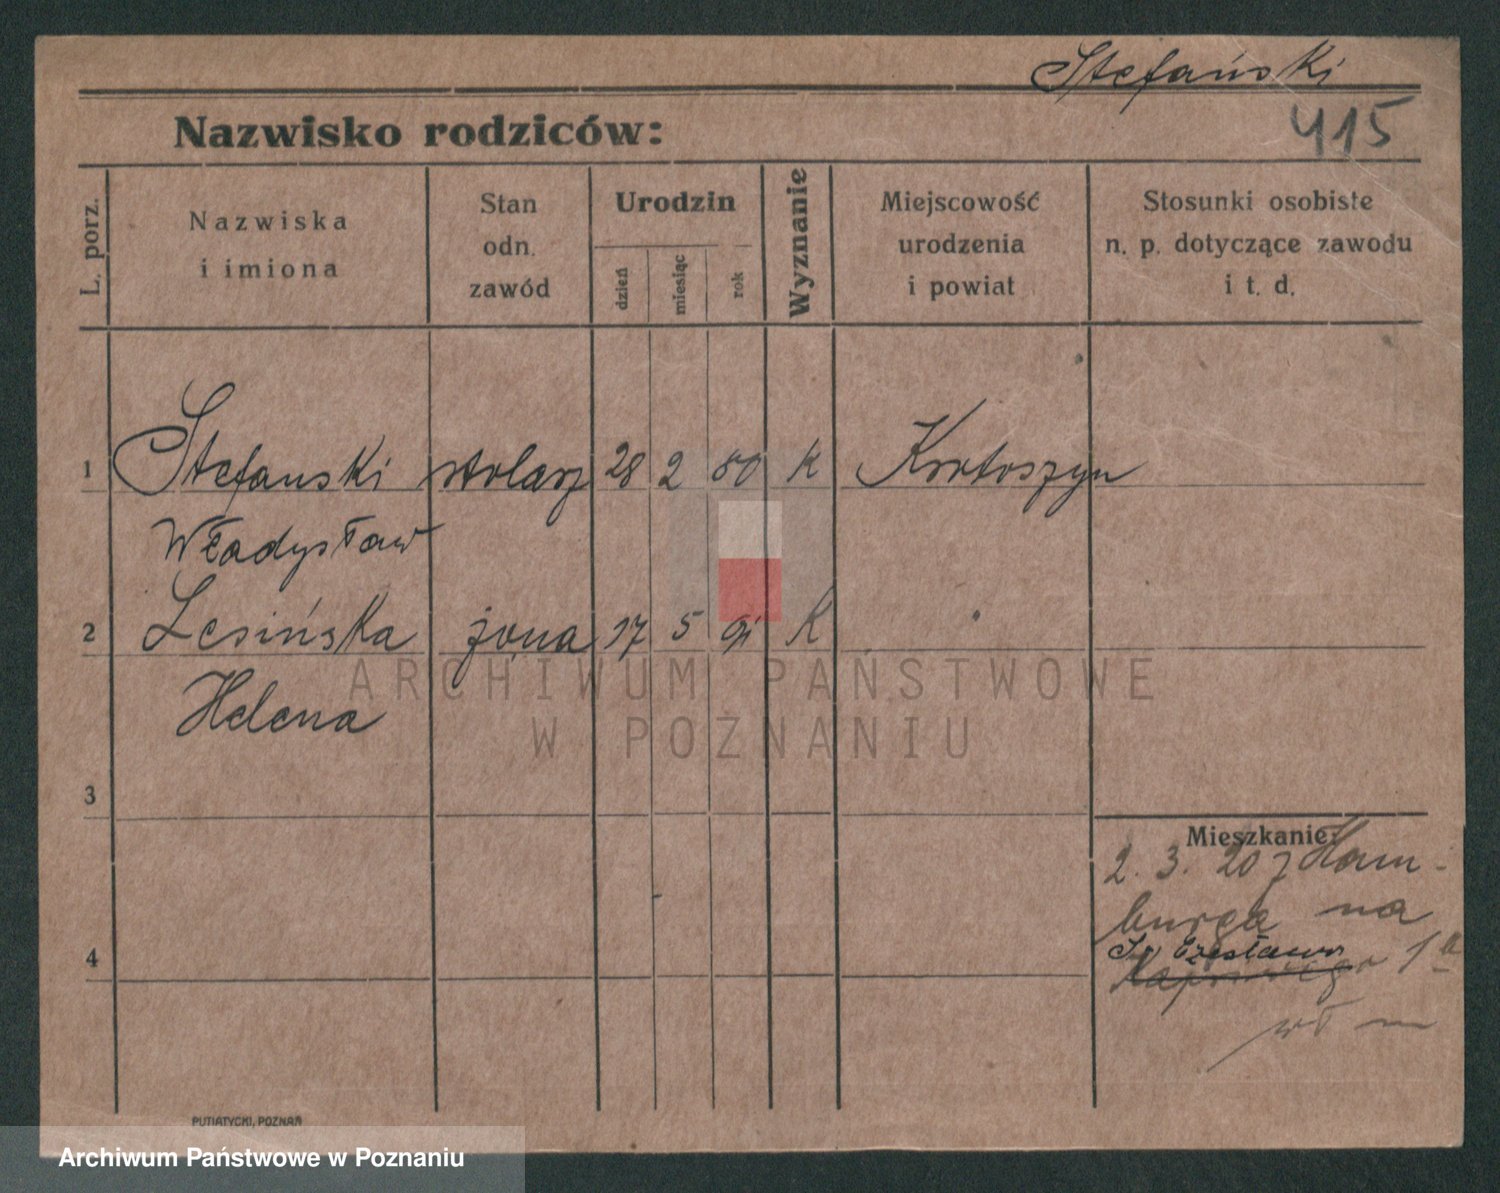 Stefański
415
Nazwisko rodziców:
L. porz.
Nazwiska
i imiona
Stan
odn.
zawód
Urodzin
dzień
miesiąc
rok
Wyznanie
Miejscowość
urodzenia
i powiat
Stosunki osobiste
n. p. dotyczące zawodu
i t. d.
1 Stefanski stolarz 28 2 80 K Krotoszyn
Władysław
2 Lesińska żona 17 5 K "
Helena
ARCHIWUM PAŃSTWOWE
W POZNANIU
3
Mieszkanie:
2. 3. 20 z Ham-
burga na
Czesława
4
1a
PUTIATYCKI, POZNAŃ
Archiwum Państwowe w Poznaniu